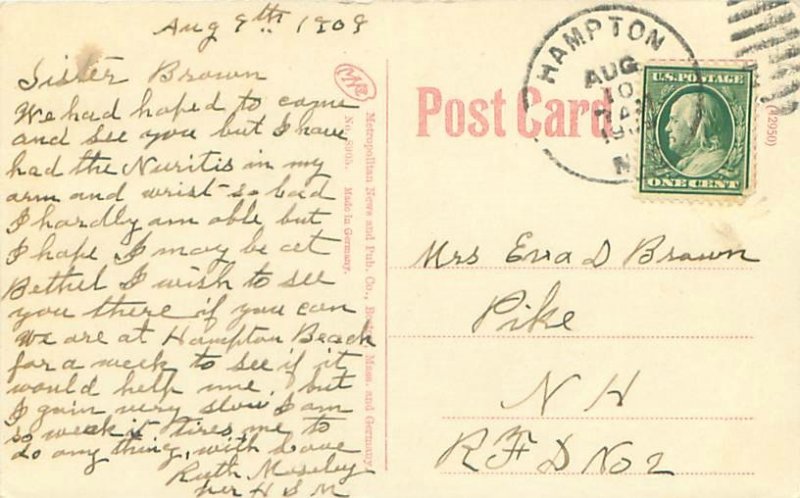 Aug 9th 1909
Sister Brown
We had hoped to come
and see you but I have
had the Nuritis in my
arm and wrist so bad
I hardly am able but
I hope I may be at
Bethel I wish to see
you there if you can
We are at Hampton Beach
for a week to see if it
would help me, but
I gain very slow, I am
so weak it tires me to
do any thing, with Love
Ruth Moseley
per H S M
MN
Metropolitan News and Pub. Co., Boston, Mass. and Germany.
No. 8905. Made in Germany.
Post Card
(42950)
HAMPTON
AUG
10
N
U.S. POSTAGE
ONE CENT
Mrs Ezra D Brown
Pike
N H
R F D No 2